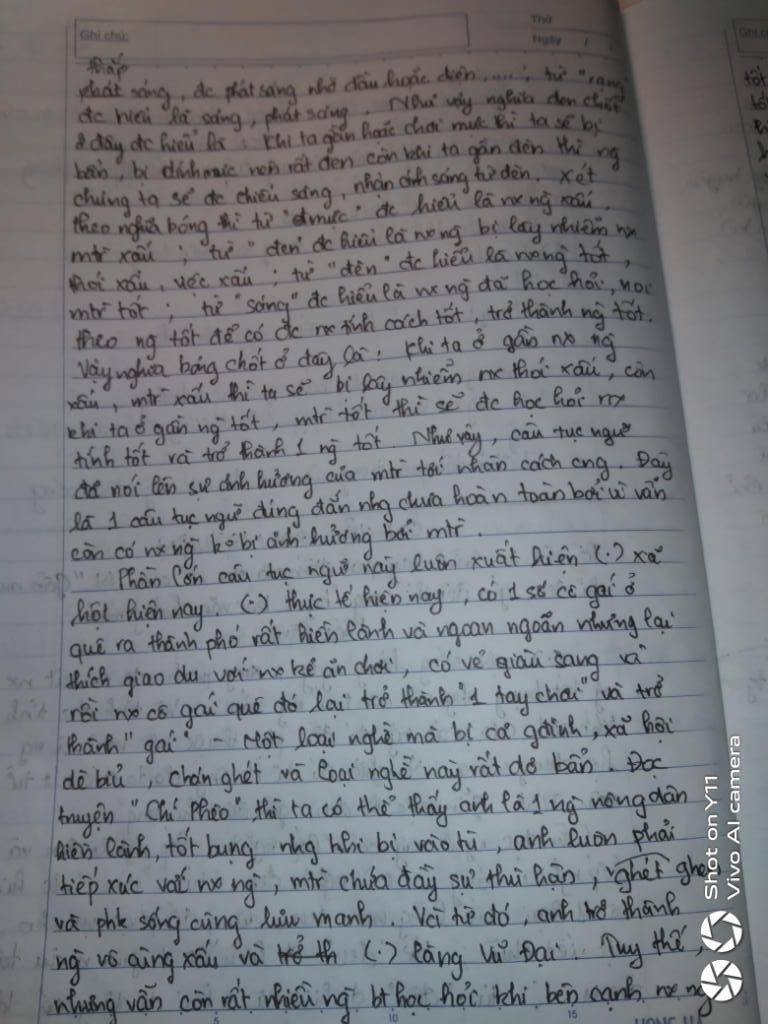 Ghi chú:
Thứ
Ngày / /
thắp
phát sáng, đc phát sáng nhờ dầu hoặc điện,.....; từ "rạng"
đc hiểu là sáng, phát sáng. Như vậy nghĩa đen chốt
ở đây đc hiểu là: Khi ta gần hoặc chơi mực thì ta sẽ bị
bẩn, bị dính mực nên rất đen còn khi ta gần đèn thì ng
chúng ta sẽ đc chiếu sáng, nhận ánh sáng từ đèn. Xét
theo nghĩa bóng thì từ "mực" đc hiểu là nx ng xấu,
mtr xấu; từ "đen" đc hiểu là nx ng bị lây nhiễm nx
thói xấu, việc xấu; từ "đèn" đc hiểu là nx ng tốt,
mtr tốt; từ "sáng" đc hiểu là nx ng đã học hỏi, noi
theo ng tốt để có đc nx tính cách tốt, trở thành ng tốt.
Vậy nghĩa bóng chốt ở đây là: Khi ta ở gần nx ng
xấu, mtr xấu thì ta sẽ bị lây nhiễm nx thói xấu, còn
khi ta ở gần ng tốt, mtr tốt thì sẽ đc học hỏi nx
tính tốt và trở thành 1 ng tốt. Như vậy, câu tục ngữ
đã nói lên sự ảnh hưởng của mtr tới nhân cách cng. Đây
là 1 câu tục ngữ đúng đắn nhg chưa hoàn toàn bởi vì vẫn
còn có nx ng ko bị ảnh hưởng bởi mtr.
Phần lớn câu tục ngữ này luôn xuất hiện (.) xã
hội hiện nay. (.) thực tế hiện nay, có 1 số cô gái ở
quê ra thành phố rất hiền lành và ngoan ngoãn nhưng lại
thích giao du với nx kẻ ăn chơi, có vẻ giàu sang và
rồi nx cô gái quê đó lại trở thành "1 tay chơi" và trở
thành "gái" - Một loại nghề mà bị cả gđình, xã hội
dè bỉu, chán ghét và loại nghề này rất dơ bẩn. Đọc
truyện "Chí Phèo" thì ta có thể thấy anh là 1 ng nông dân
hiền lành, tốt bụng nhg khi bị vào tù, anh luôn phải
tiếp xúc với nx ng, mtr chứa đầy sự thù hận, ghét ghen
và phk sống cùng lưu manh. Và từ đó, anh trở thành
ng vô cùng xấu và trở th (.) làng Vũ Đại. Tuy thế,
nhưng vẫn còn rất nhiều ng bt học hỏi khi bên cạnh nx ng
5 10 15
Shot on Y11
Vivo AI camera